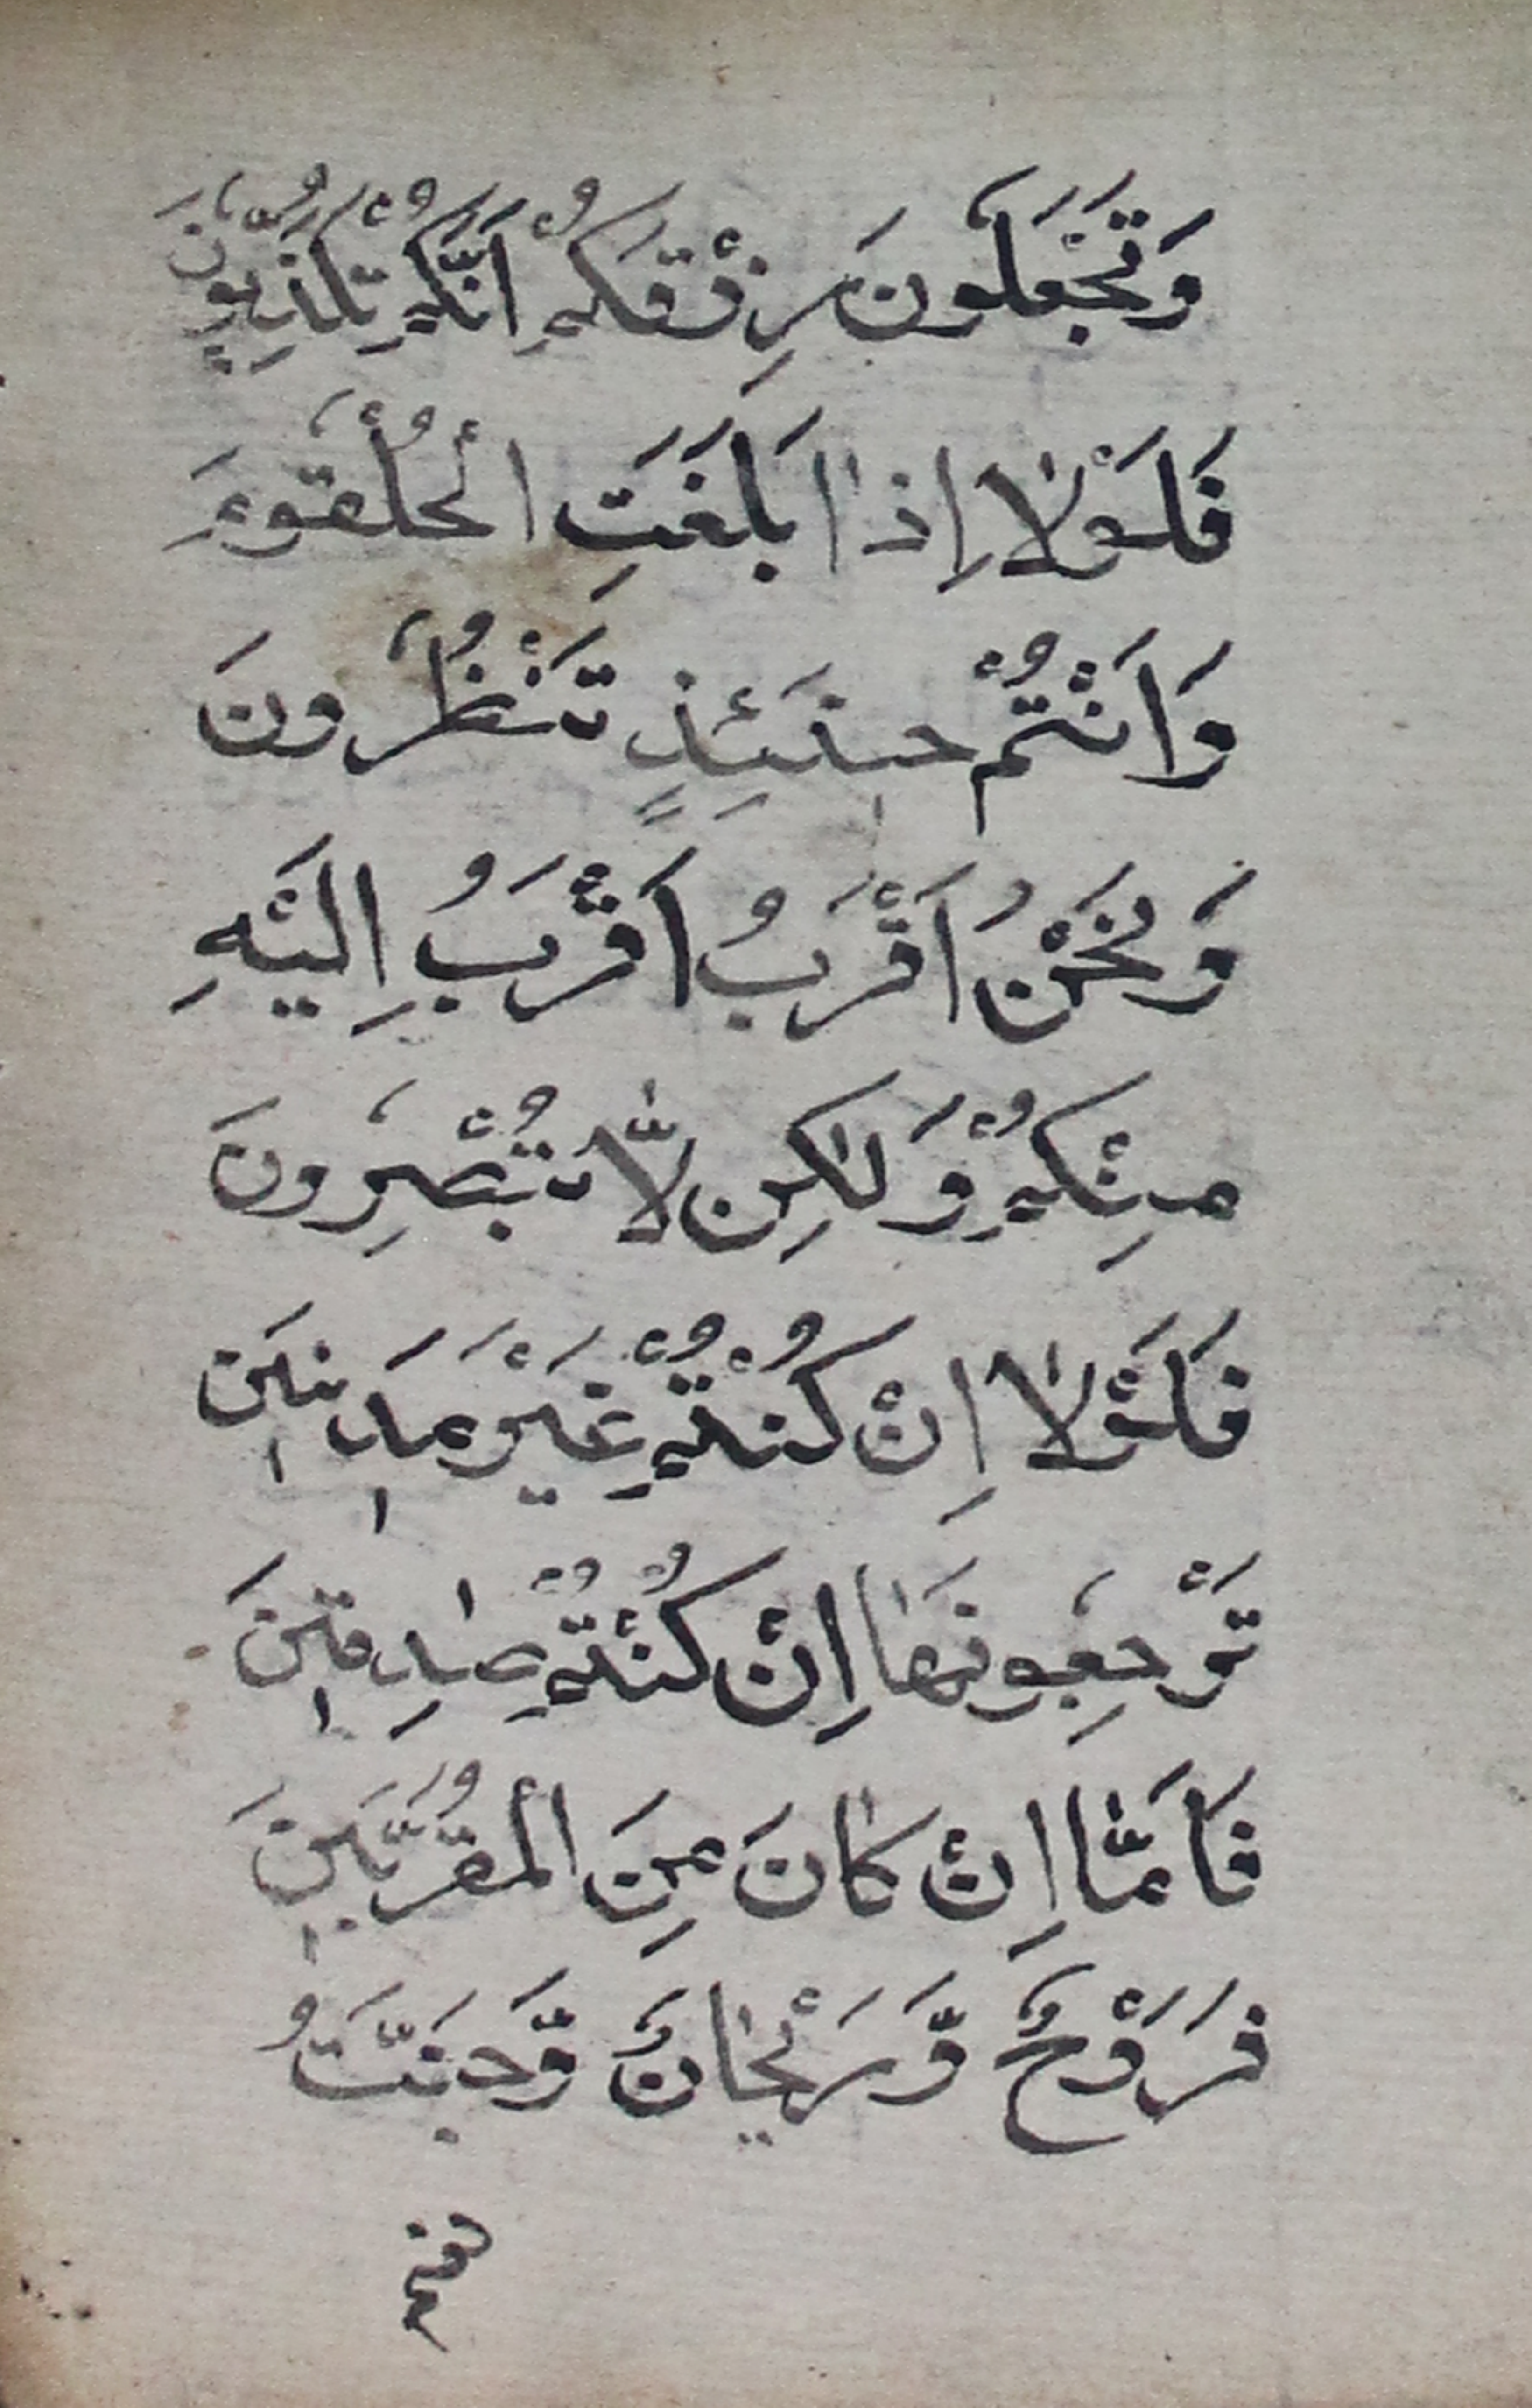 وَتَجْعَلُونَ رِزْقَكُمْ اَنَّكُمْ تُكَذِّبُونَ
فَلَوْلَا اِذَا بَلَغَتِ الْحُلْقُومَ
وَاَنْتُمْ حِينَئِذٍ تَنْظُرُونَ
وَنَحْنُ اَقْرَبُ اَقْرَبُ اِلَيْهِ
مِنْكُمْ وَلٰكِن لَّا تُبْصِرُونَ
فَلَوْلَا اِنْ كُنْتُمْ غَيْرَ مَدِينِينَ
تَرْجِعُونَهَا اِنْ كُنْتُمْ صٰدِقِينَ
فَاَمَّا اِنْ كَانَ مِنَ الْمُقَرَّبِينَ
فَرَوْحٌ وَّرَيْحَانٌ وَّجَنَّتُ
نعيم